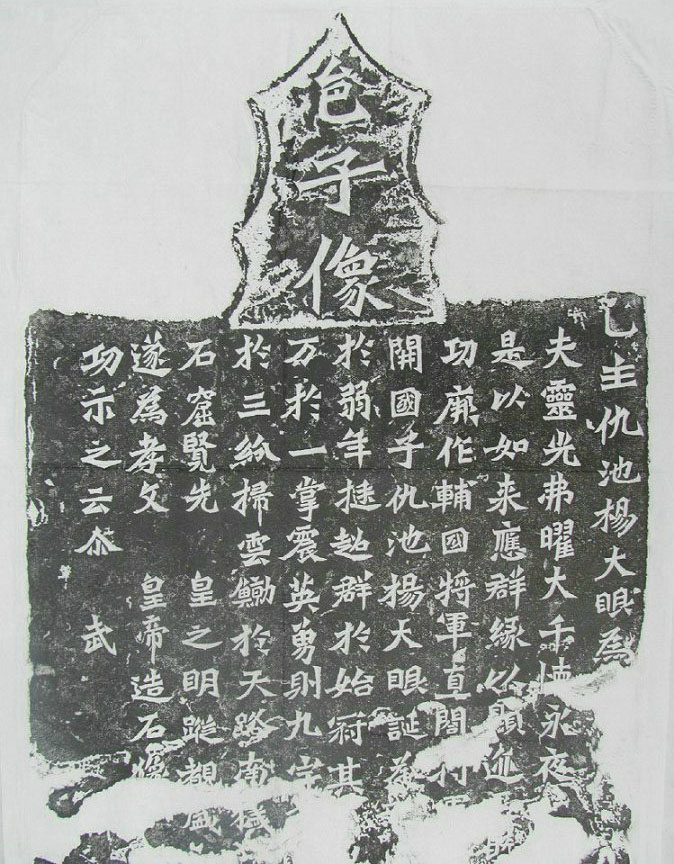 邑子像
邑主仇池楊大眼為
夫靈光弗曜大千懷永夜
是以如来應群緣以顯迹
功厥作輔國將軍直閤將
開國子仇池楊大眼誕承
於弱年挺超群於始冠其
万於一掌震英勇則九宇
於三紛掃雲鯨於天路南穢
石窟覽先 皇之明蹤覩盛
遂為孝文 皇帝造石像
功示之云尒 武